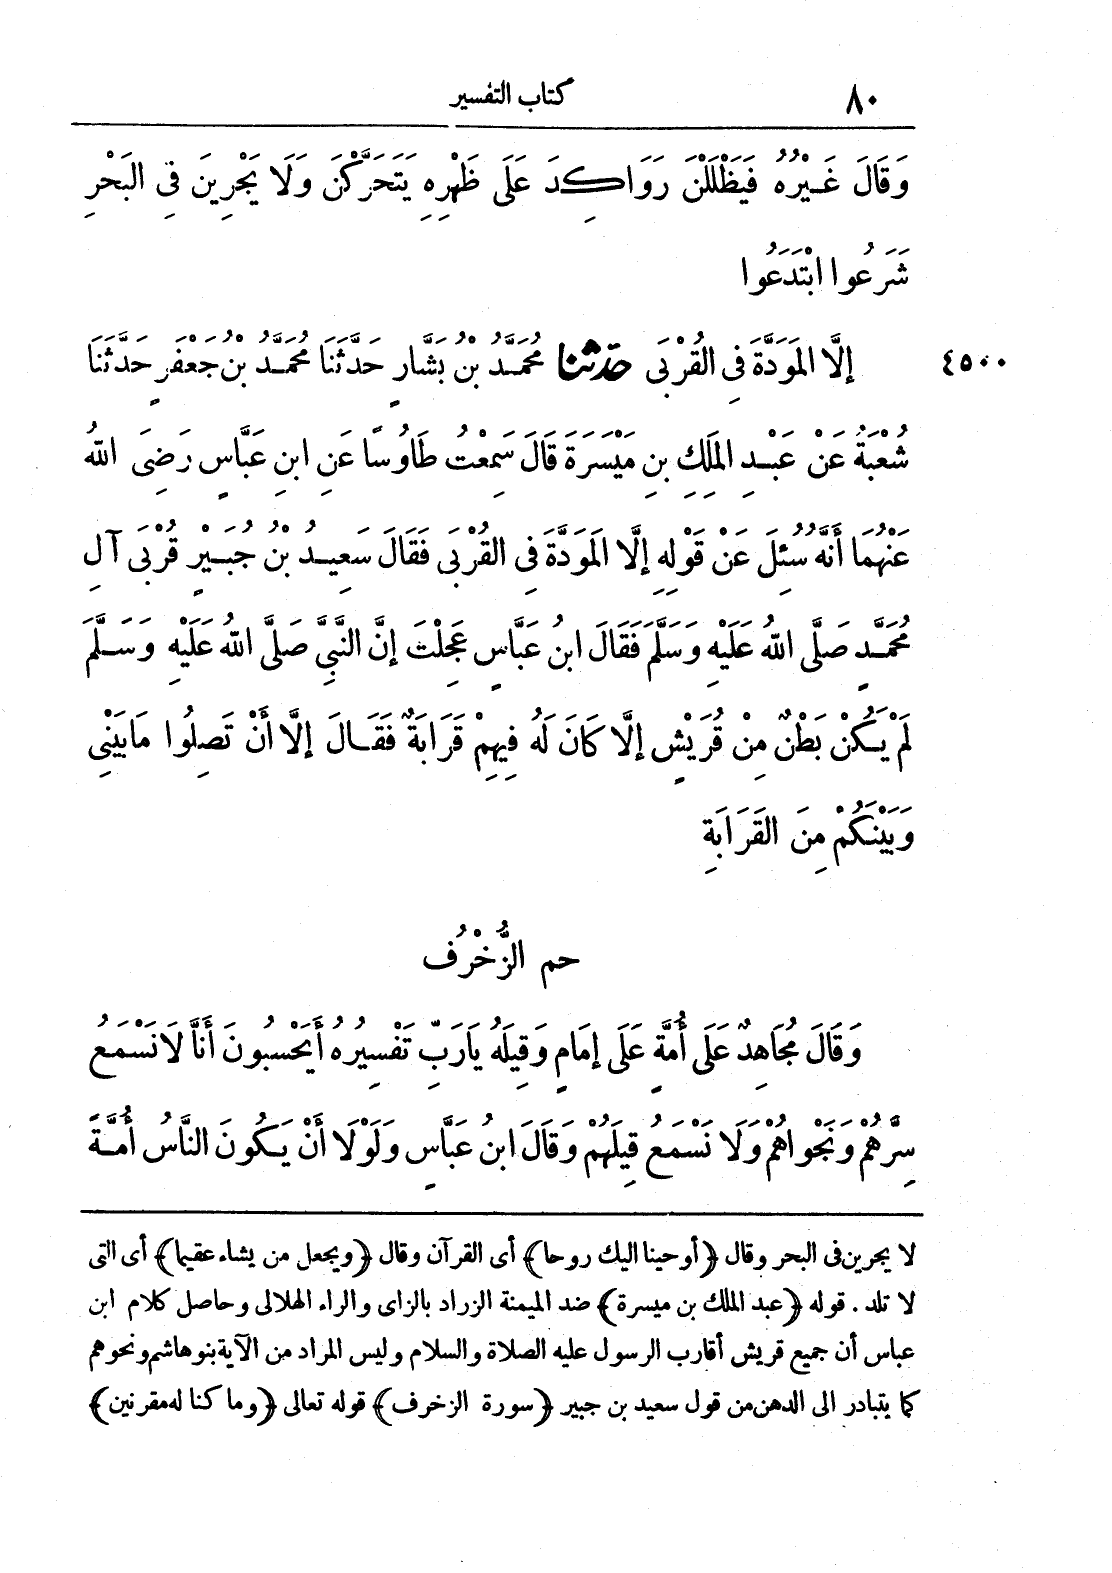 ٨٠ كتاب التفسير
وَقَالَ غَيْرُهُ فَيَظْلَلْنَ رَوَاكِدَ عَلَى ظَهْرِهِ يَتَحَرَّكْنَ وَلَا يَجْرِينَ فِى البَحْرِ
شَرَعُوا ابْتَدَعُوا
٤٥٠٠ إِلَّا المَوَدَّةَ فِى القُرْبَى حَدَّثَنَا مُحَمَّدُ بْنُ بَشَّارٍ حَدَّثَنَا مُحَمَّدُ بْنُ جَعْفَرٍ حَدَّثَنَا
شُعْبَةُ عَنْ عَبْدِ المَلِكِ بنِ مَيْسَرَةَ قَالَ سَمِعْتُ طَاوُسًا عَنِ ابنِ عَبَّاسٍ رَضِىَ اللهُ
عَنْهُمَا أَنَّهُ سُئِلَ عَنْ قَوْلِهِ إِلَّا المَوَدَّةَ فِى القُرْبَى فَقَالَ سَعِيدُ بْنُ جُبَيْرٍ قُرْبَى آلِ
مُحَمَّدٍ صَلَّى اللهُ عَلَيْهِ وَسَلَّمَ فَقَالَ ابنُ عَبَّاسٍ عَجِلْتَ إِنَّ النَّبِىَّ صَلَّى اللهُ عَلَيْهِ وَسَلَّمَ
لَمْ يَكُنْ بَطْنٌ مِنْ قُرَيْشٍ إِلَّا كَانَ لَهُ فِيهِمْ قَرَابَةٌ فَقَالَ إِلَّا أَنْ تَصِلُوا مَابَيْنِى
وَبَيْنَكُمْ مِنَ القَرَابَةِ
حم الزُّخْرُف
وَقَالَ مُجَاهِدٌ عَلَى أُمَّةٍ عَلَى إِمَامٍ وَقِيلَهُ يَارَبِّ تَفْسِيرُهُ أَيَحْسِبُونَ أَنَّا لَا نَسْمَعُ
سِرَّهُمْ وَنَجْوَاهُمْ وَلَا نَسْمَعُ قِيلَهُمْ وَقَالَ ابنُ عَبَّاسٍ وَلَوْلَا أَنْ يَكُونَ النَّاسُ أُمَّةً
لا يجرين فى البحر وقال ﴿أوحينا اليك روحا﴾ أى القرآن وقال ﴿ويجعل من يشاء عقيما﴾ أى التى
لا تلد . قوله ﴿عبد الملك بن ميسرة﴾ ضد الميمنة الزراد بالزاى والراء الهلالى وحاصل كلام ابن
عباس أن جميع قريش أقارب الرسول عليه الصلاة والسلام وليس المراد من الآية بنو هاشم ونحوهم
كما يتبادر الى الذهن من قول سعيد بن جبير ﴿سورة الزخرف﴾ قوله تعالى ﴿وما كنا له مقرنين﴾